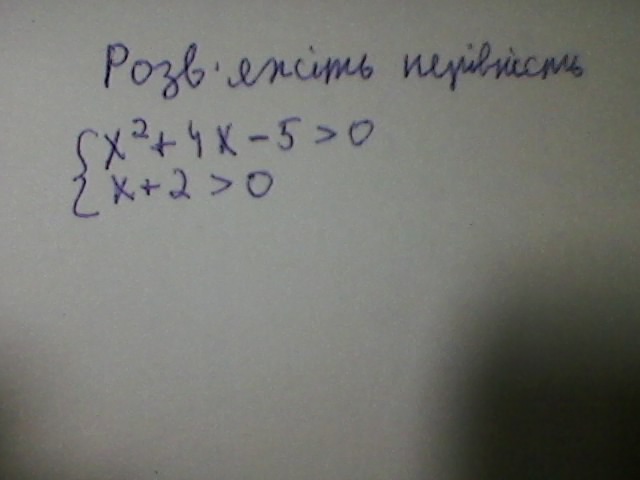 Розв'яжіть нерівність
x² + 4x - 5 > 0
x + 2 > 0